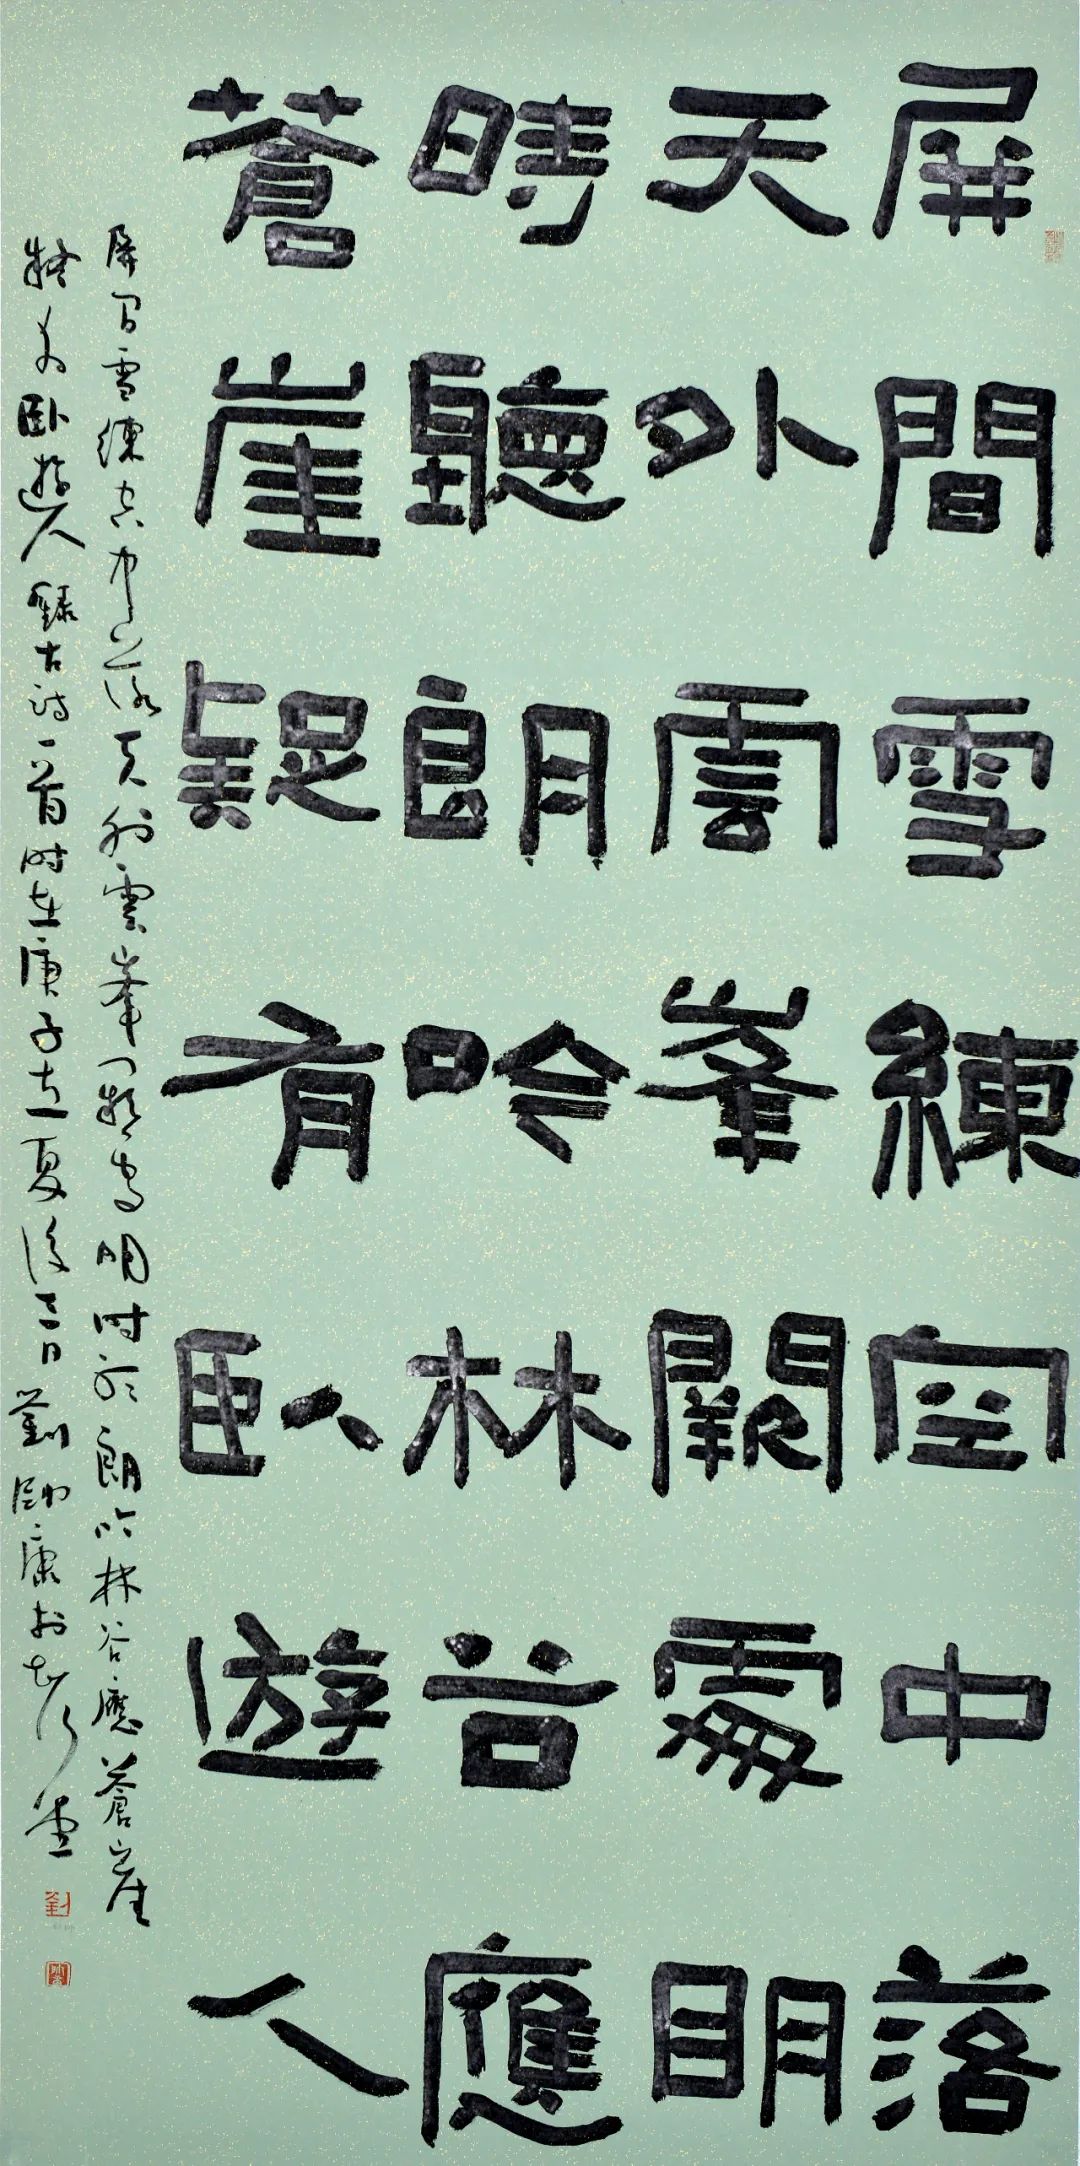 屏間雪練空中落
天外雲峯闕處明
時聽朗吟林谷應
蒼崖疑有臥遊人
屏間雪練空中落天外雲峯闕處明時聽朗吟林谷應蒼崖
疑有臥遊人錄古詩一首時在庚子立夏後 劉師康於
劉